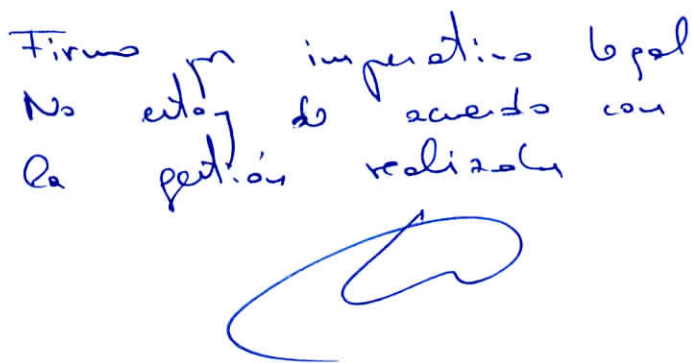 Firmo por imperativo legal
No estoy de acuerdo con
la gestión realizada